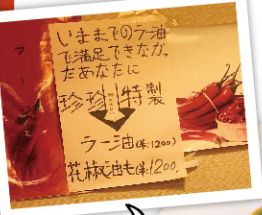 いままでのラー油
で満足できなかっ
たあなたに
珍珍特製
ラー油(¥:1200)
花椒油も(¥:1200)